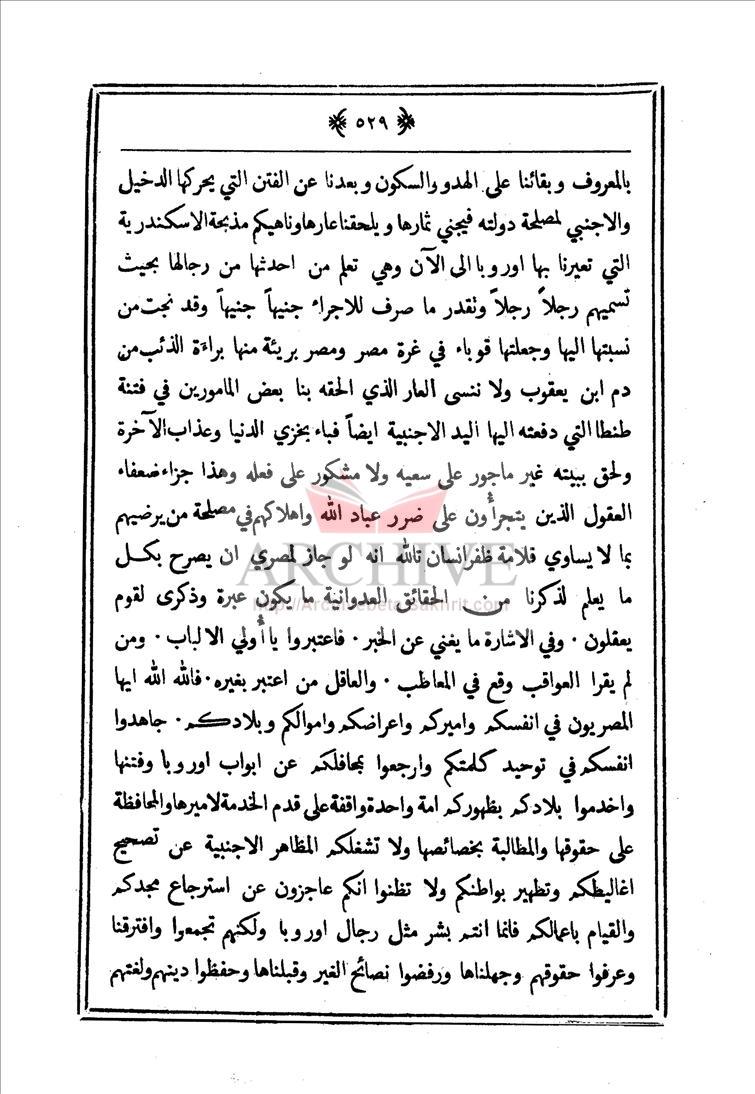 ﴿ ٥٢٩ ﴾
بالمعروف وبقائنا على الهدو والسكون وبعدنا عن الفتن التي يحركها الدخيل
والاجنبي لمصلحة دولته فيجني ثمارها ويلحقنا عارها وناهيكم مذبحة الاسكندرية
التي تعيرنا بها اوروبا الى الآن وهي تعلم من احدثها من رجالها بحيث
تسميهم رجلاً رجلاً وتقدر ما صرف للاجراء جنيهاً جنيهاً وقد نجت من
نسبتها اليها وجعلتها قوباء في غرة مصر ومصر بريئة منها براءة الذئب من
دم ابن يعقوب ولا ننسى العار الذي الحقه بنا بعض المامورين في فتنة
طنطا التي دفعته اليها اليد الاجنبية ايضاً فباء بخزي الدنيا وعذاب الآخرة
ولحق ببيته غير ماجور على سعيه ولا مشكور على فعله وهذا جزاء ضعفاء
العقول الذين يتجرأون على ضرر عباد الله واهلاكهم في مصلحة من يرضيهم
بما لا يساوي قلامة ظفر انسان تالله انه لو جاز لمصري ان يصرح بكل
ما يعلم لذكرنا من الحقائق العدوانية ما يكون عبرة وذكرى لقوم
يعقلون ٠ وفي الاشارة ما يغني عن الخبر ٠ فاعتبروا يا أولي الالباب ٠ ومن
لم يقرا العواقب وقع في المعاطب ٠ والعاقل من اعتبر بغيره ٠ فالله الله ايها
المصريون في انفسكم واميركم واعراضكم واموالكم وبلادكم ٠ جاهدوا
انفسكم في توحيد كلمتكم وارجعوا بمحافلكم عن ابواب اوروبا وفتنها
واخدموا بلادكم بظهوركم امة واحدة واقفة على قدم الخدمة لاميرها والمحافظة
على حقوقها والمطالبة بخصائصها ولا تشغلكم المظاهر الاجنبية عن تصحيح
اغاليظكم وتطهير بواطنكم ولا تظنوا انكم عاجزون عن استرجاع مجدكم
والقيام باعمالكم فانما انتم بشر مثل رجال اوروبا ولكنهم تجمعوا وافترقنا
وعرفوا حقوقهم وجهلناها ورفضوا نصائح الغير وقبلناها وحفظوا دينهم ولغتهم
ARCHIVE